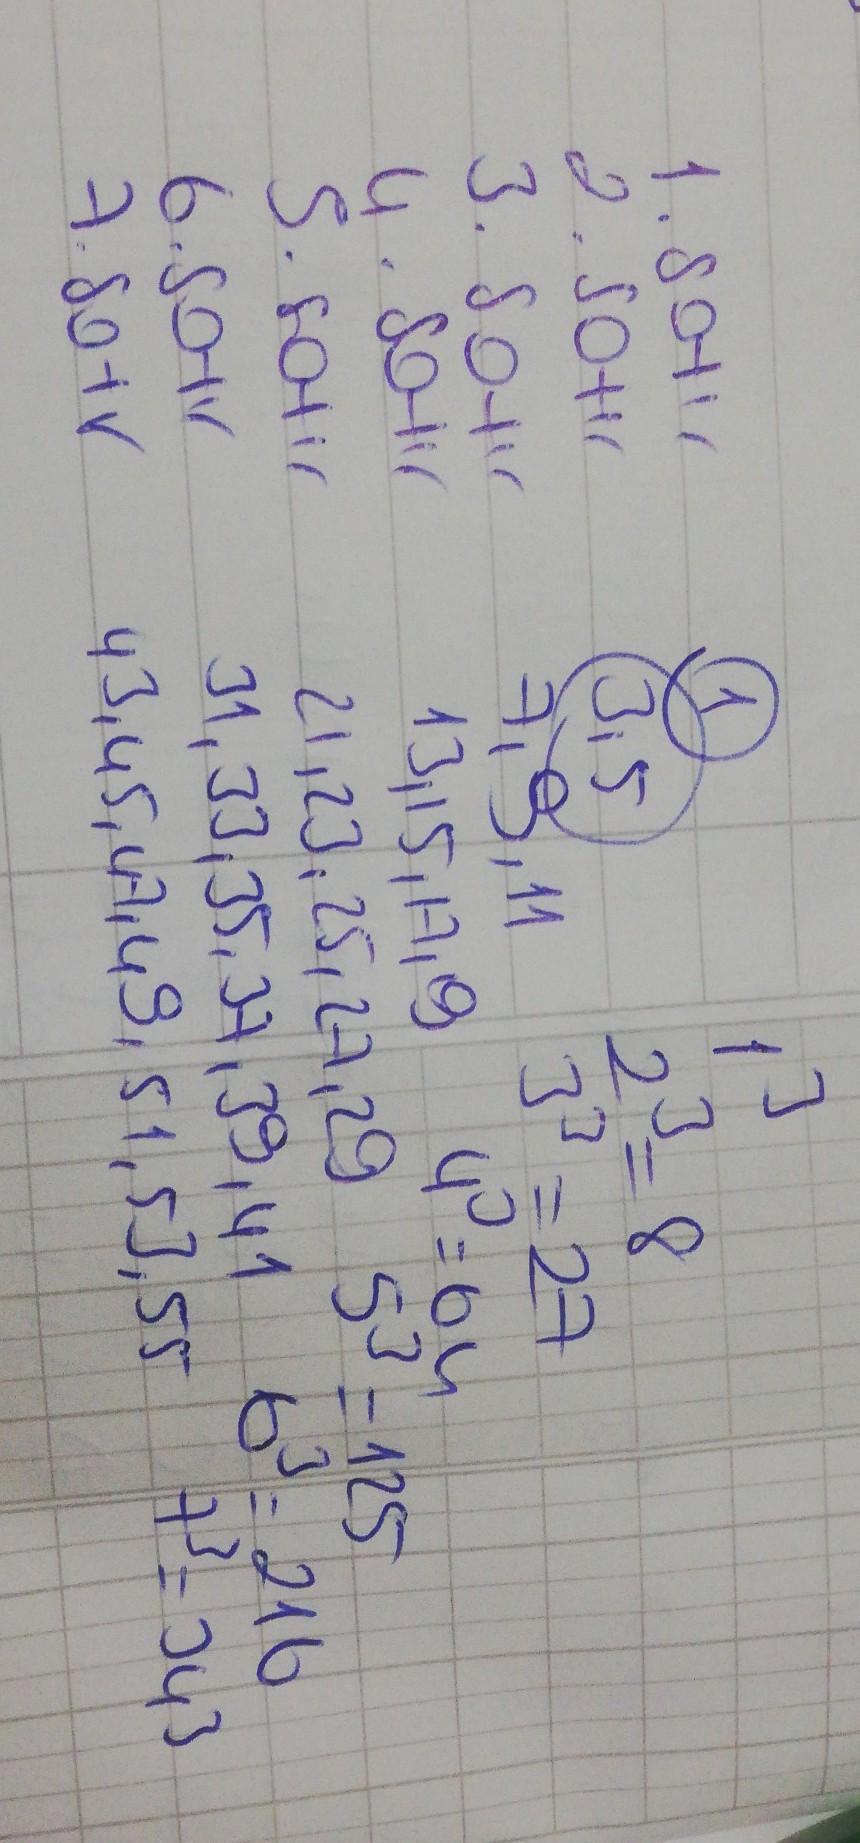 1. sətir 1 1³
2. sətir 3,5 2³ = 8
3. sətir 7,9,11 3³ = 27
4. sətir 13,15,17,9 4³ = 64
5. sətir 21,23,25,27,29 5³ = 125
6. sətir 31,33,35,37,39,41 6³ = 216
7. sətir 43,45,47,49,51,53,55 7³ = 343